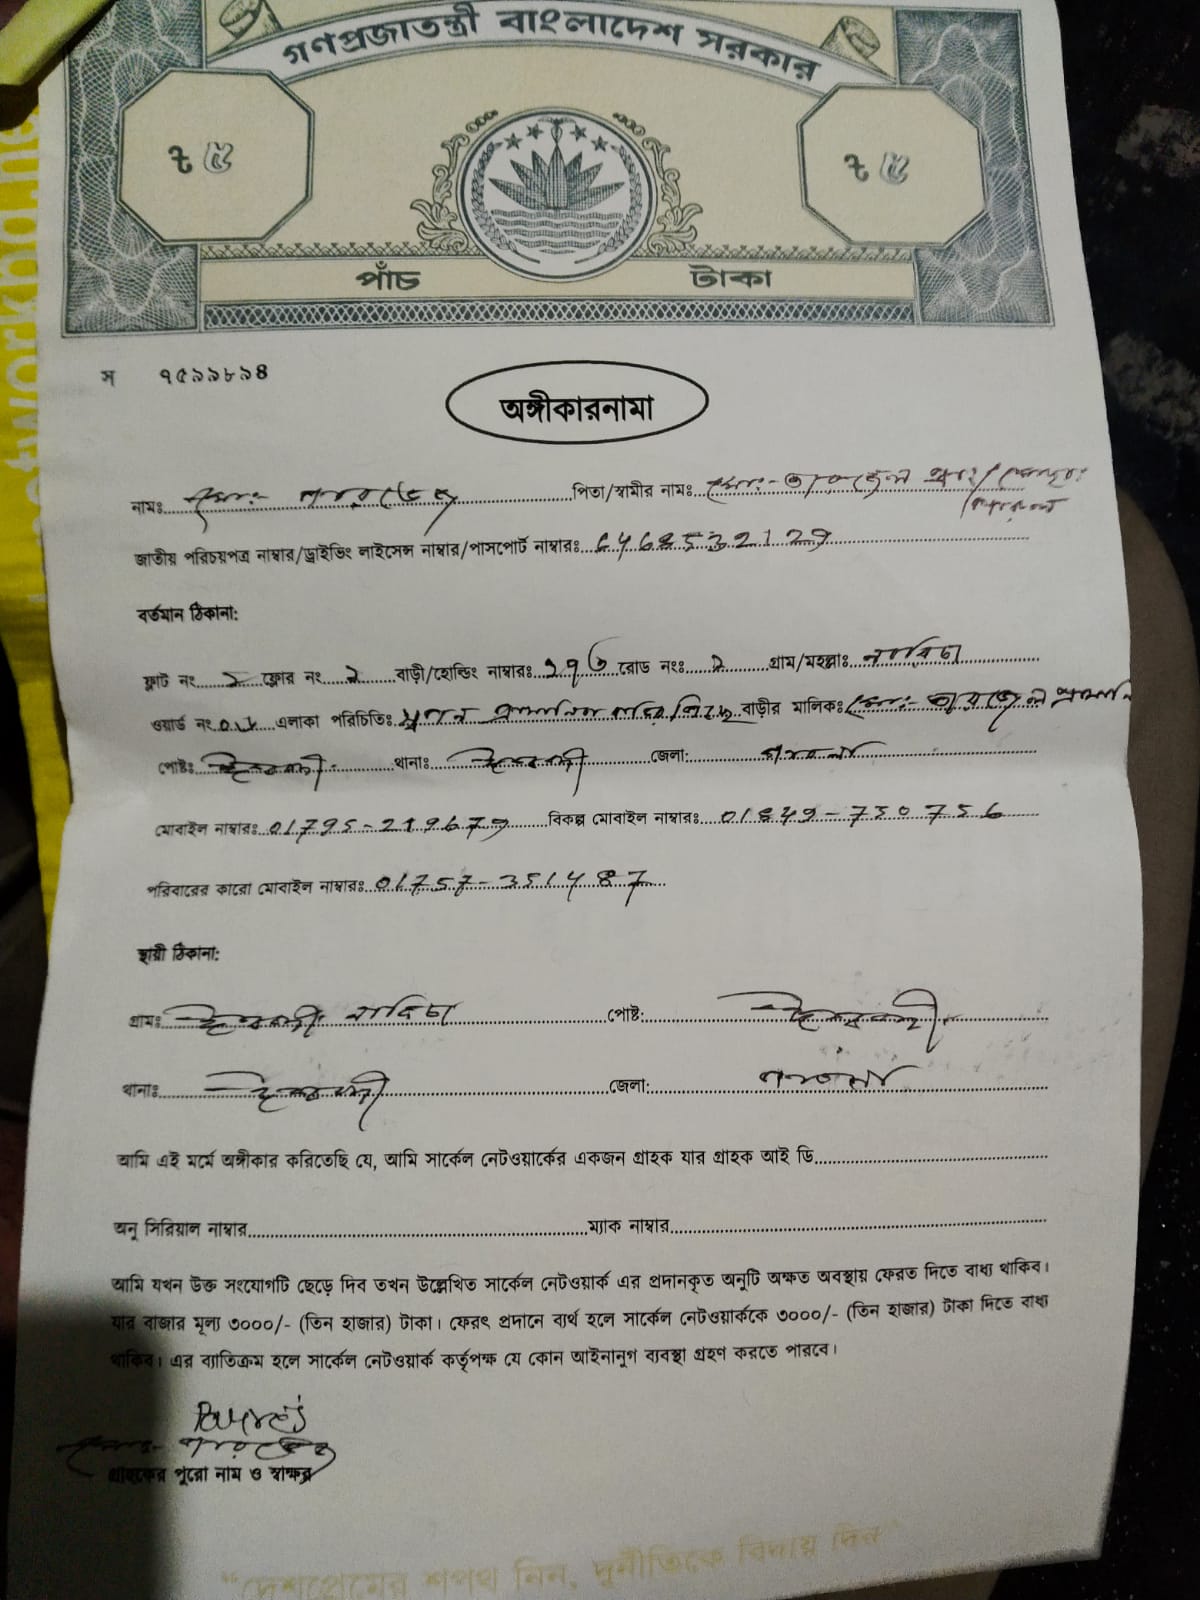 গণপ্রজাতন্ত্রী বাংলাদেশ সরকার
৳ ৫ ৳ ৫
পাঁচ টাকা
স ৭৫৯৯৮৯৪
অঙ্গীকারনামা
নামঃ মোঃ- পারভেজ পিতা/স্বামীর নামঃ মোঃ-
জাতীয় পরিচয়পত্র নাম্বার/ড্রাইভিং লাইসেন্স নাম্বার/পাসপোর্ট নাম্বারঃ 6468532129
বর্তমান ঠিকানা:
ফ্লাট নং ফ্লোর নং ২ বাড়ী/হোল্ডিং নাম্বারঃ রোড নংঃ ২ গ্রাম/মহল্লাঃ
ওয়ার্ড নং এলাকা পরিচিতিঃ বাড়ীর মালিকঃ মোঃ-
পোষ্টঃ ঈশ্বরদী থানাঃ ঈশ্বরদী জেলা: পাবনা
মোবাইল নাম্বারঃ 01795-219679 বিকল্প মোবাইল নাম্বারঃ 01849-750756
পরিবারের কারো মোবাইল নাম্বারঃ 01757-351487
স্থায়ী ঠিকানা:
গ্রামঃ ঈশ্বরদী পোষ্ট: ঈশ্বরদী
থানাঃ ঈশ্বরদী জেলা: পাবনা
আমি এই মর্মে অঙ্গীকার করিতেছি যে, আমি সার্কেল নেটওয়ার্কের একজন গ্রাহক যার গ্রাহক আই ডি
অনু সিরিয়াল নাম্বার ম্যাক নাম্বার
আমি যখন উক্ত সংযোগটি ছেড়ে দিব তখন উল্লেখিত সার্কেল নেটওয়ার্ক এর প্রদানকৃত অনুটি অক্ষত অবস্থায় ফেরত দিতে বাধ্য থাকিব।
যার বাজার মূল্য ৩০০০/- (তিন হাজার) টাকা। ফেরৎ প্রদানে ব্যর্থ হলে সার্কেল নেটওয়ার্ককে ৩০০০/- (তিন হাজার) টাকা দিতে বাধ্য
থাকিব। এর ব্যাতিক্রম হলে সার্কেল নেটওয়ার্ক কর্তৃপক্ষ যে কোন আইনানুগ ব্যবস্থা গ্রহণ করতে পারবে।
মোঃ- পারভেজ
গ্রাহকের পুরো নাম ও স্বাক্ষর
"দেশপ্রেমের শপথ নিন, দুর্নীতিকে বিদায় দিন"